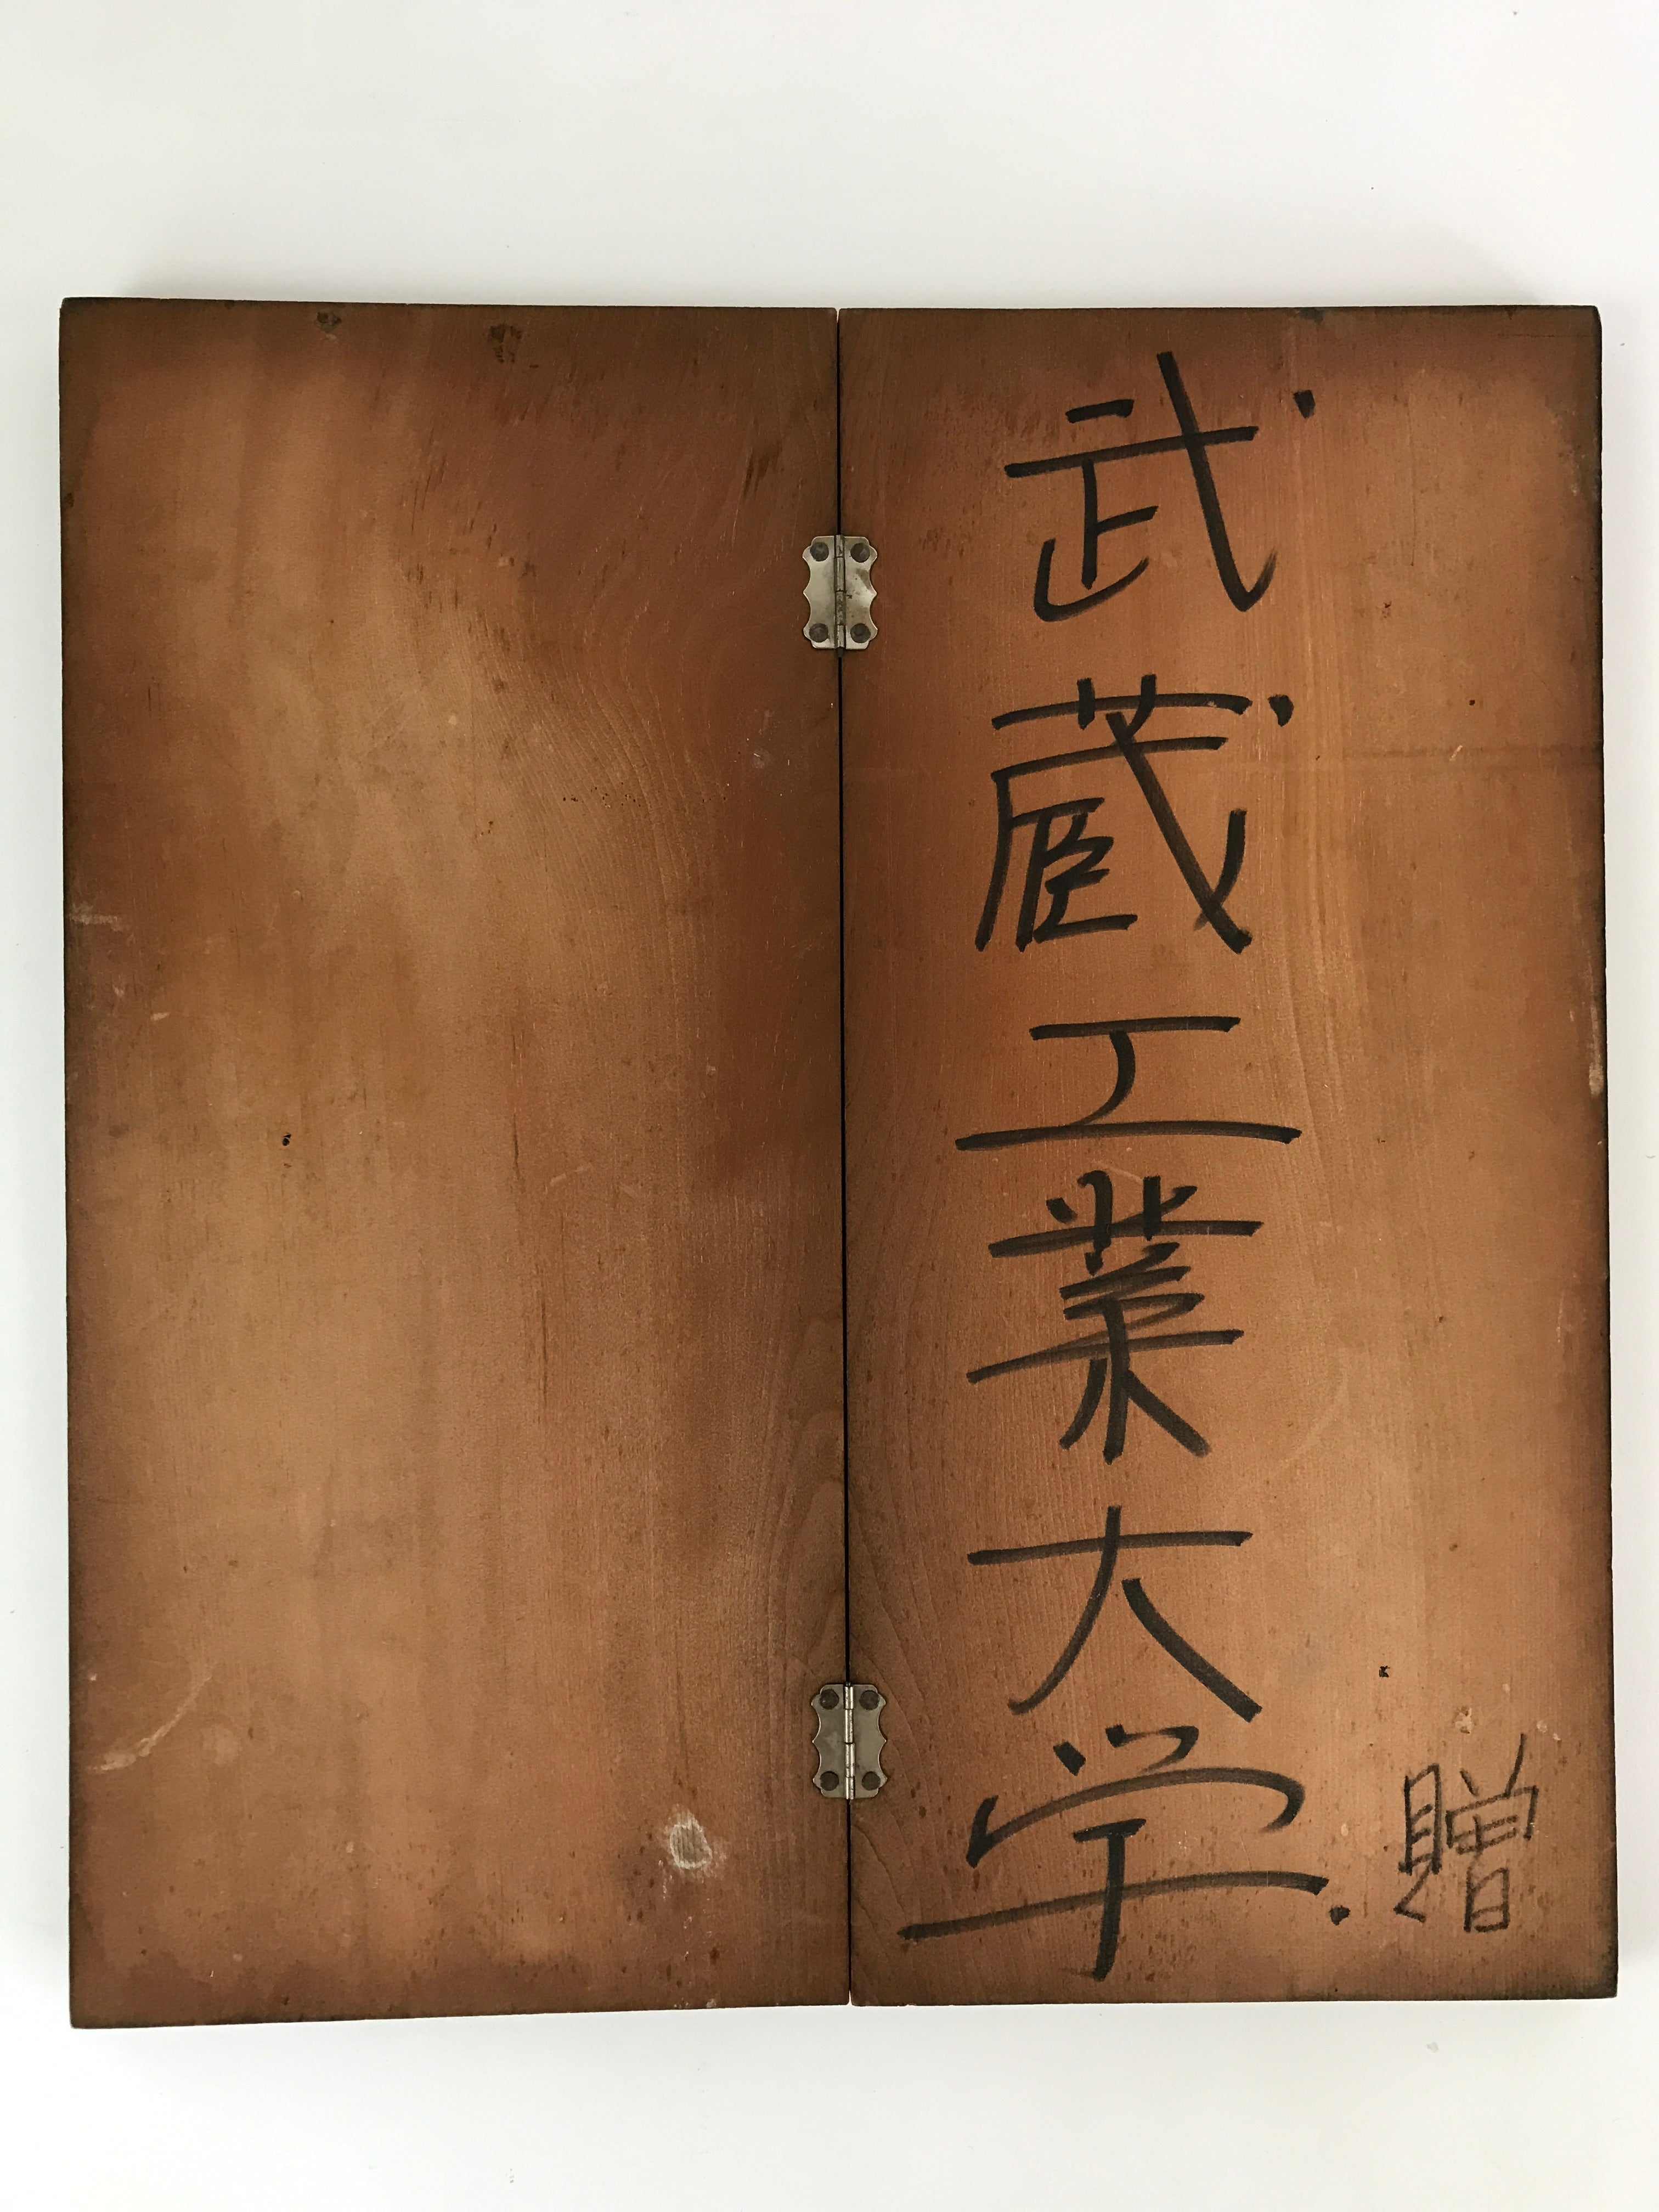 贈
武蔵工業大学